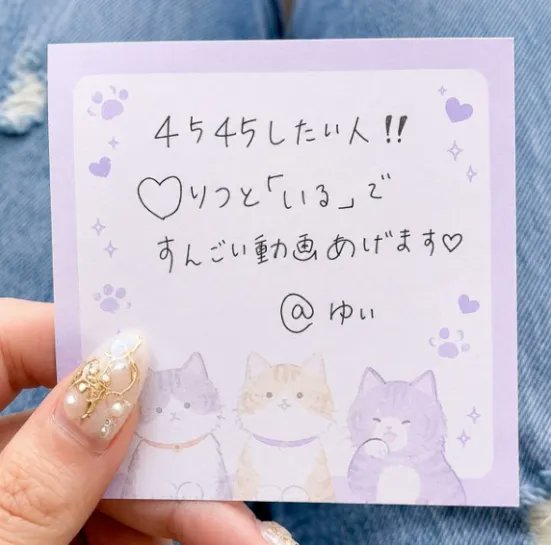 4545したい人!!
♡りつと「いる」で
すんごい動画あげます♡
@ゆぃ